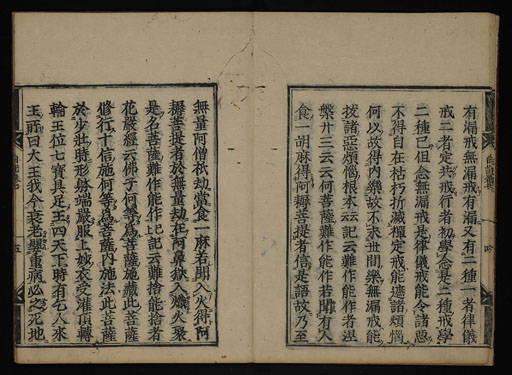 有漏戒無漏戒有漏又有二種一者律儀
戒二者定共戒行者初學念是二種戒學
二種已但念無漏戒是律儀戒能令諸惡
不得自在枯朽折減禪定戒能遮諸煩惱
何以故得内樂故不求世間樂無漏戒能
拔諸惡煩惱根本云云記云難作能作者涅
槃廾三云云何菩薩難作能作若聞有人
食一胡麻得阿耨菩提者信是語故乃至
無量阿僧祇劫當食一麻若聞入火得阿
耨菩提者於無量劫在阿鼻獄入熾火聚
是名菩薩難作能作記記云難捨能捨者
花嚴經云佛子何等為菩薩難施藏此菩薩
修行十信施何等為菩薩内施法此菩薩
於少壯時形躰端嚴服上妙衣受灌頂轉
輪王位七寳具足王四天下時有乞人來
王所白大王我今衰老纒重病必之死地